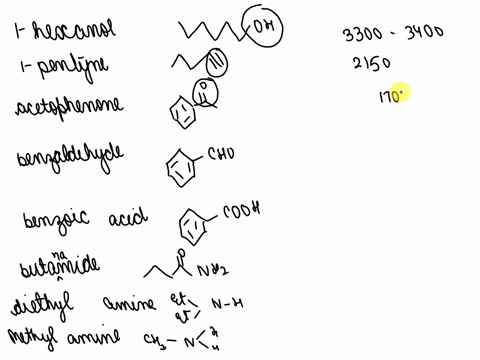 1-hexanol OH 3300 - 3400
1-pentyne 2150
acetophenone O 170
benzaldehyde CHO
benzoic acid COOH
na
butamide O NH2
diethyl amine et et N-H
Methyl amine CH3-N H H